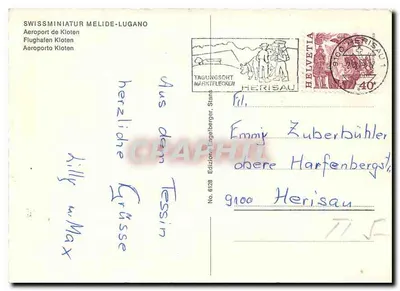 SWISSMINIATUR MELIDE-LUGANO
Aeroport de Kloten
Flughafen Kloten
Aeroporto Kloten
Aus dem Tessin
herzliche Grüsse
Lilly u. Max
No. 6128 Edizioni Lagerberger,
TAGUNGSORT
MARKTFLECKEN
HERISAU
9100 HERISAU 1
HELVETIA
40
Frl.
Emmy Zuberbühler
obere Harfenbergst.
9100 Herisau